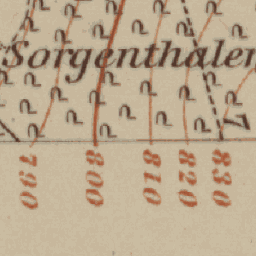 Sorgenthalen
790
800
810
820
830